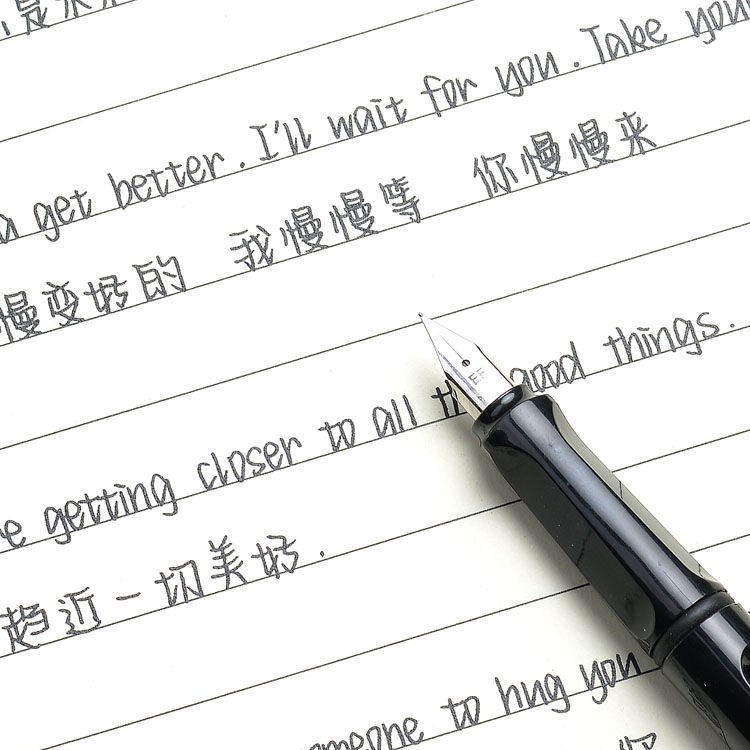 是
get better. I'll wait for you. Take you
慢变好的 我慢慢等 你慢慢来
getting closer to all good things.
趋近一切美好.
to hug you
EF